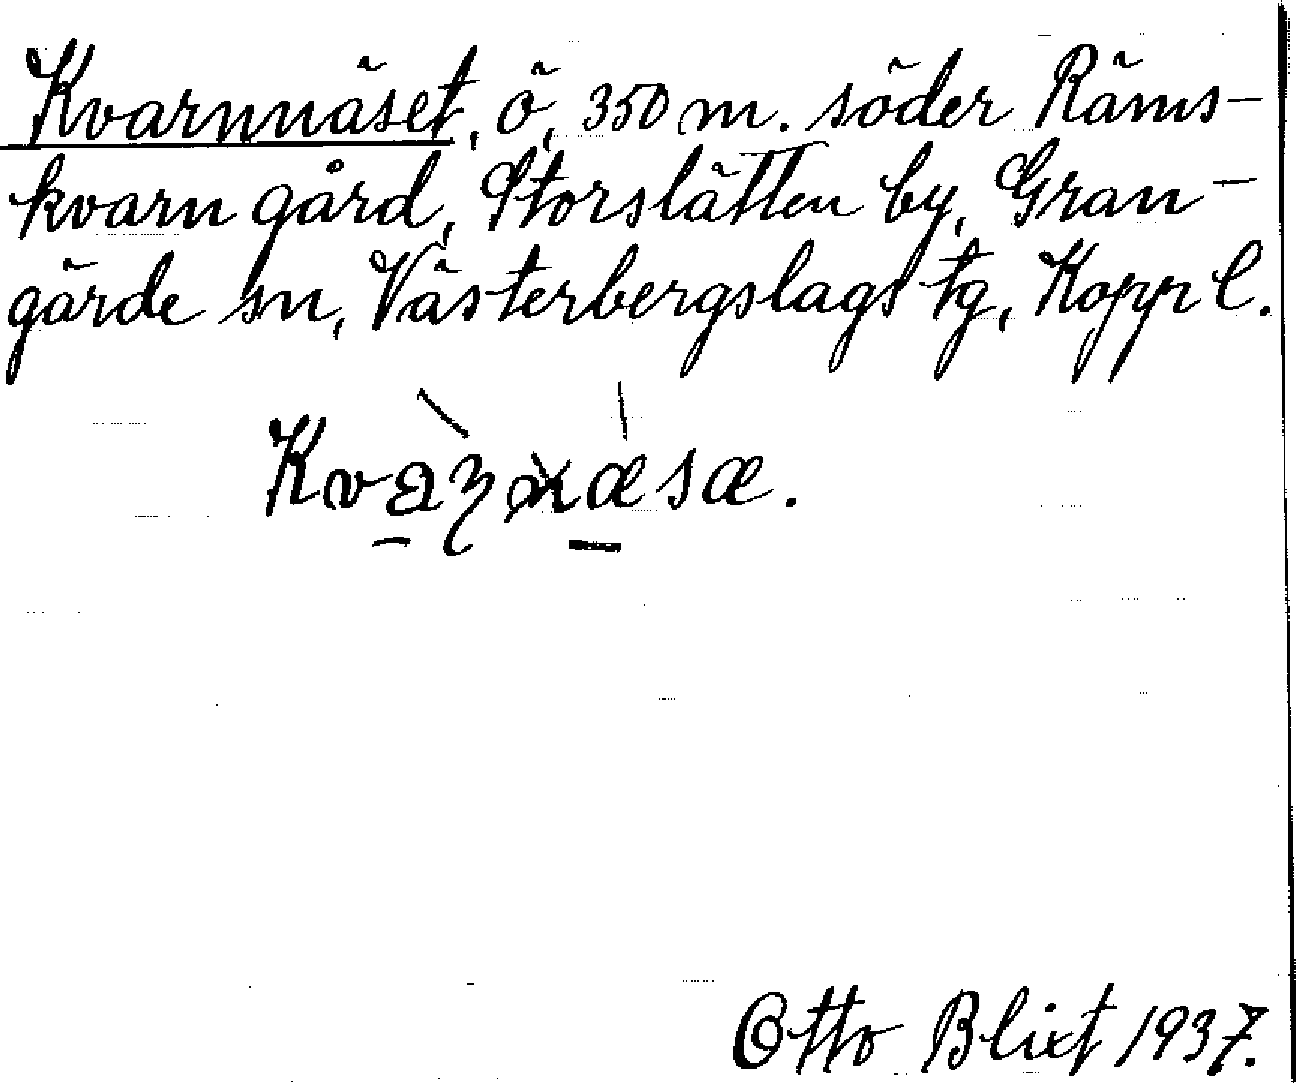 Kvarnnäset, ö, 350 m. söder Räms-
kvarn gård, Storslätten by, Gran-
gärde sn, Västerbergslags tg, Kopp l.
Otto Blixt 1937.